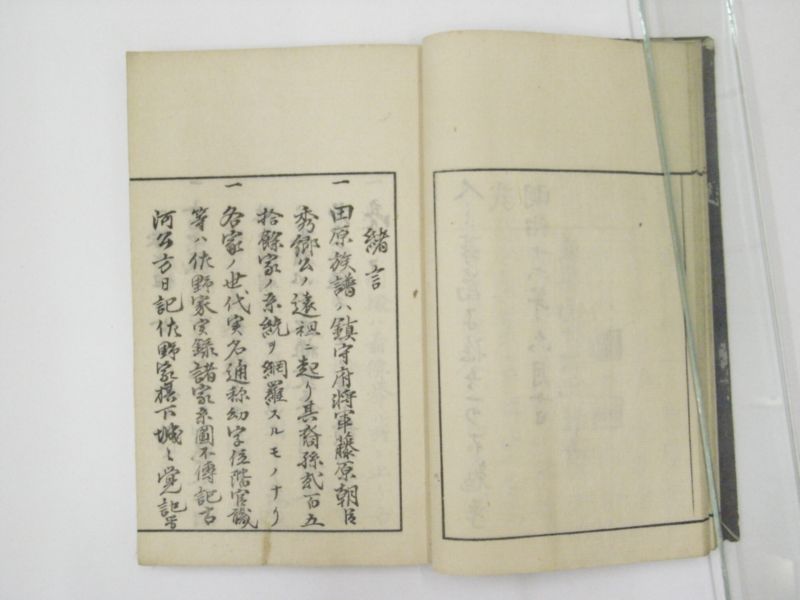 緒言
一 田原族譜ハ鎮守府将軍藤原朝臣
秀郷公ノ遠祖ニ起リ其裔孫弐百五
拾餘家ノ系統ヲ網羅スルモノナリ
一 各家ノ世代実名通称幼字位階官職
等ハ佐野家実録諸家系図本傳記古
河公方日記佐野家 下城之覚記